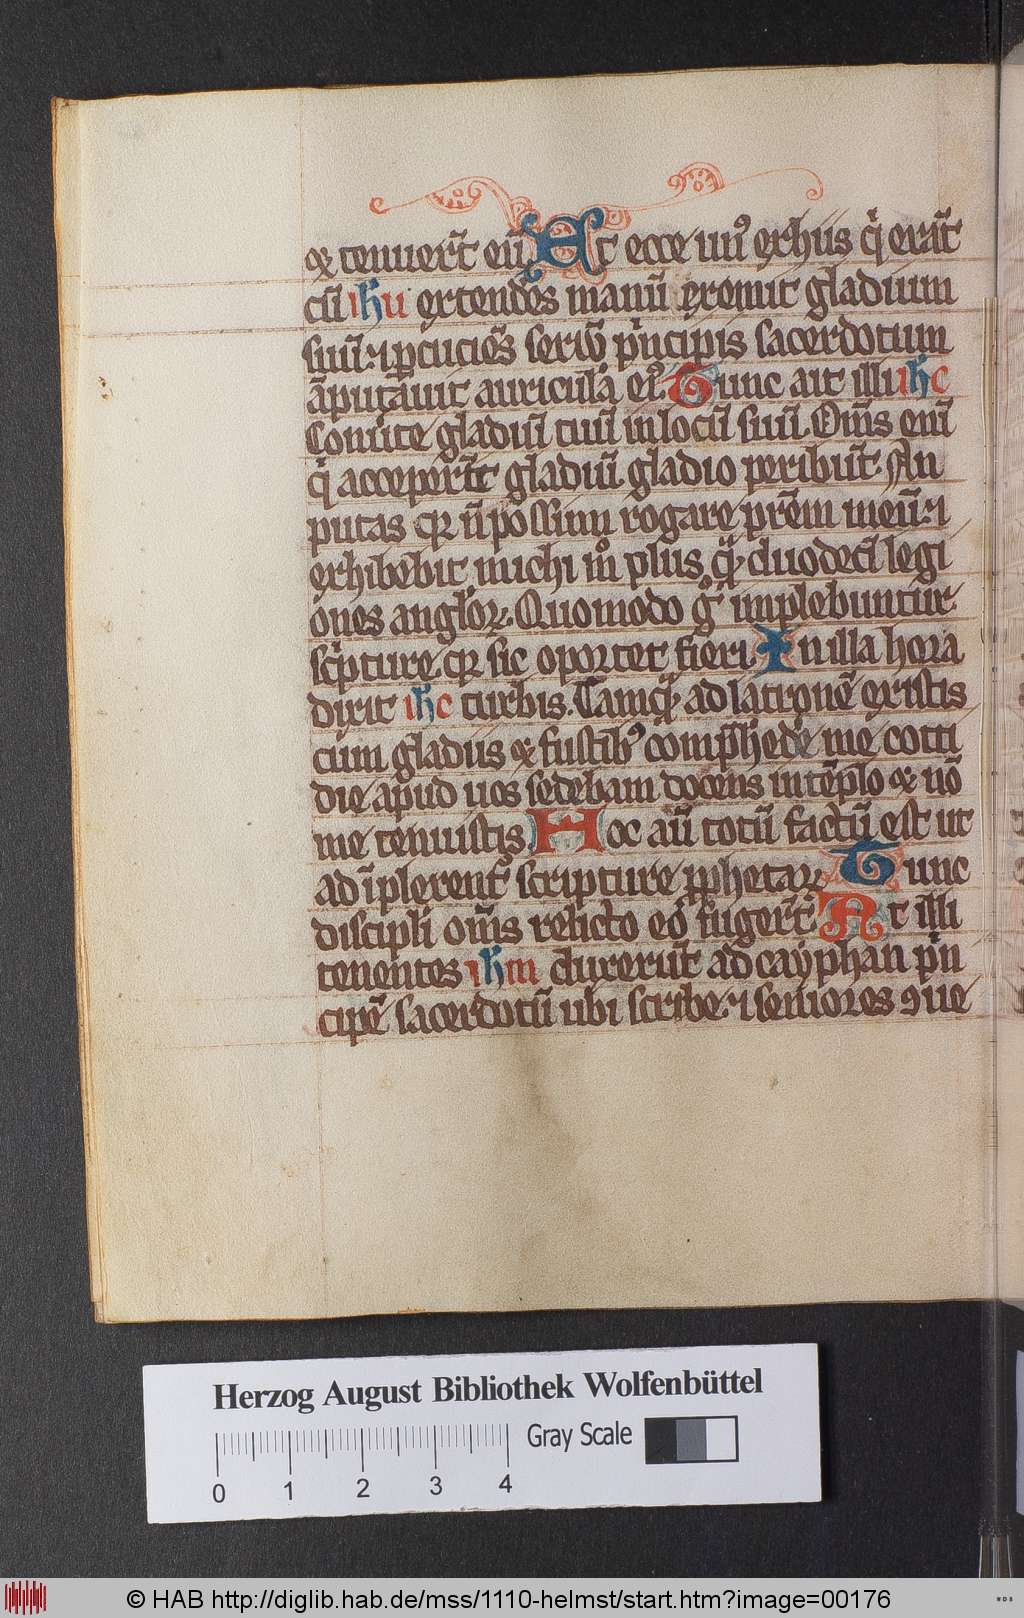 ⁊ tenuer̄t eū Et ecce un᷒ ex hiis q̇ erāt
cū ihu extendēs manū exemit gladium
suū. ⁊ ꝑcuciēs seruū p̄ncipis sacerdotum
āputauit auriculā ei᷒ Tunc ait illi ihc
Conuerte gladiū tuū in locū suū. Om̄s enī
q̇ acceper̄t gladiū gladio peribūt. An
putas qꝛ n̄ possum rogare pr̄em meū. ⁊
exhibebit michi m̊ plus q̄ duodecī legi
ones anglo̊ꝝ. Quomodo g̊ implebuntur
sc̄pture qꝛ sic oportet fieri In illa hora
dixit ihc turbis. Tamq̄ ad latronē existis
cum gladiis ⁊ fustib᷒ comp̄hēde me cotti
die apud uos sedebam docens in tēplo ⁊ nō
me tenuistis Hoc aū totū factū est ut
ad īplerent᷑ scripture ꝓphetaꝝ Tunc
discipli om̄s relicto eo fuger̄t At illi
tenentes ihm duxerūt ad cayphan p̄n
cipē sacerdotū ubi scribe. ⁊ seniores ꝯue
Herzog August Bibliothek Wolfenbüttel
Gray Scale
0 1 2 3 4
© HAB http://diglib.hab.de/mss/1110-helmst/start.htm?image=00176